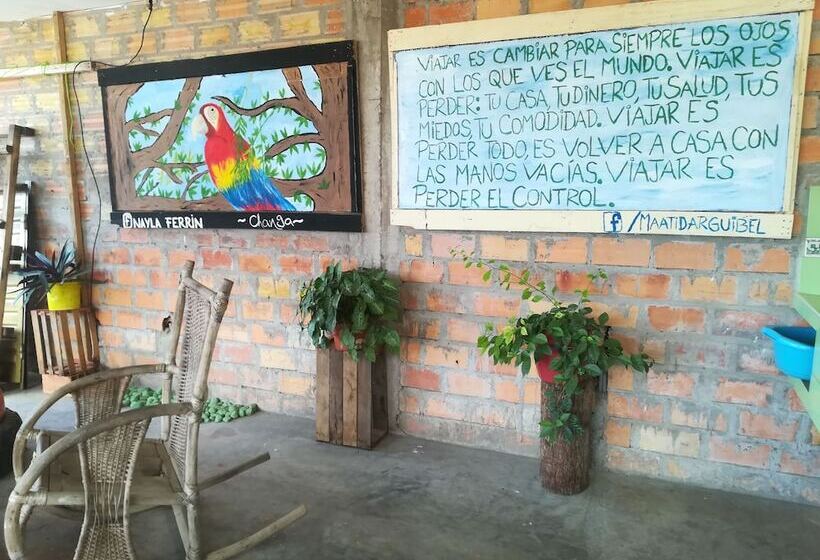 VIAJAR ES CAMBIAR PARA SIEMPRE LOS OJOS
CON LOS QUE VES EL MUNDO. VIAJAR ES
PERDER: TU CASA, TU DINERO, TU SALUD, TUS
MIEDOS, TU COMODIDAD. VIAJAR ES
PERDER TODO, ES VOLVER A CASA CON
LAS MANOS VACÍAS. VIAJAR ES
PERDER EL CONTROL.
f/MAATIDARGUIBEL
f NAYLA FERRIN ~Changa~